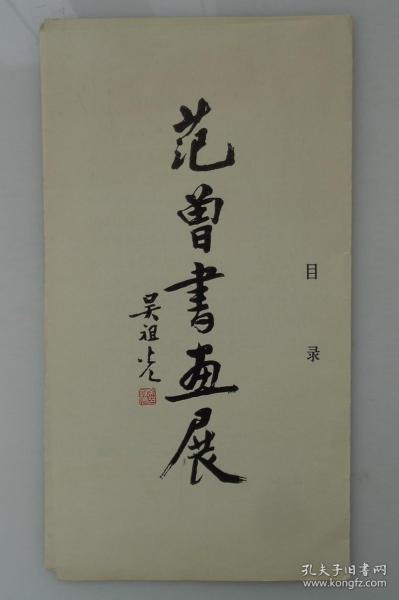 范曾書画展
吴祖光
目录
孔夫子旧书网
kongfz.com